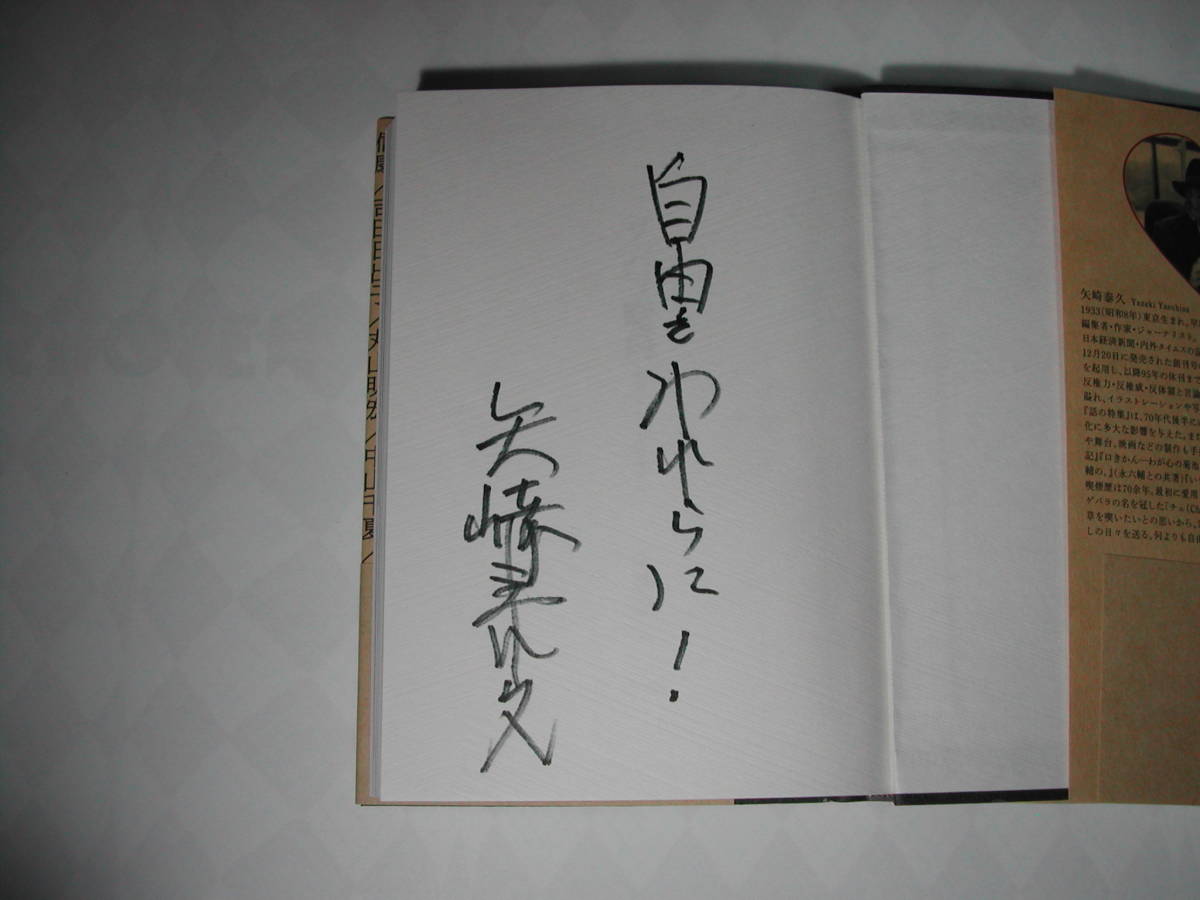 自由を われらに!
矢崎泰久
矢崎泰久 Yazaki Yasuhisa
1933(昭和8年)東京生まれ。早
編集者・作家・ジャーナリスト。
日本経済新聞・内外タイムスの記
12月20日に発売された創刊号
を起用し、以降95年の休刊まで
反権力・反権威・反体制と言論
溢れ、イラストレーションや写
『話の特集』は、70年代後半に
化に多大な影響を与えた。また
や舞台、映画などの制作も手
記』『口きかん―わが心の菊池
輔の、』(永六輔との共著)『い
喫煙歴は70余年。最初に愛用
ゲバラの名を冠した「チェ(Ch
草を喫いたいとの思いから、
しの日々を送る。何よりも自由